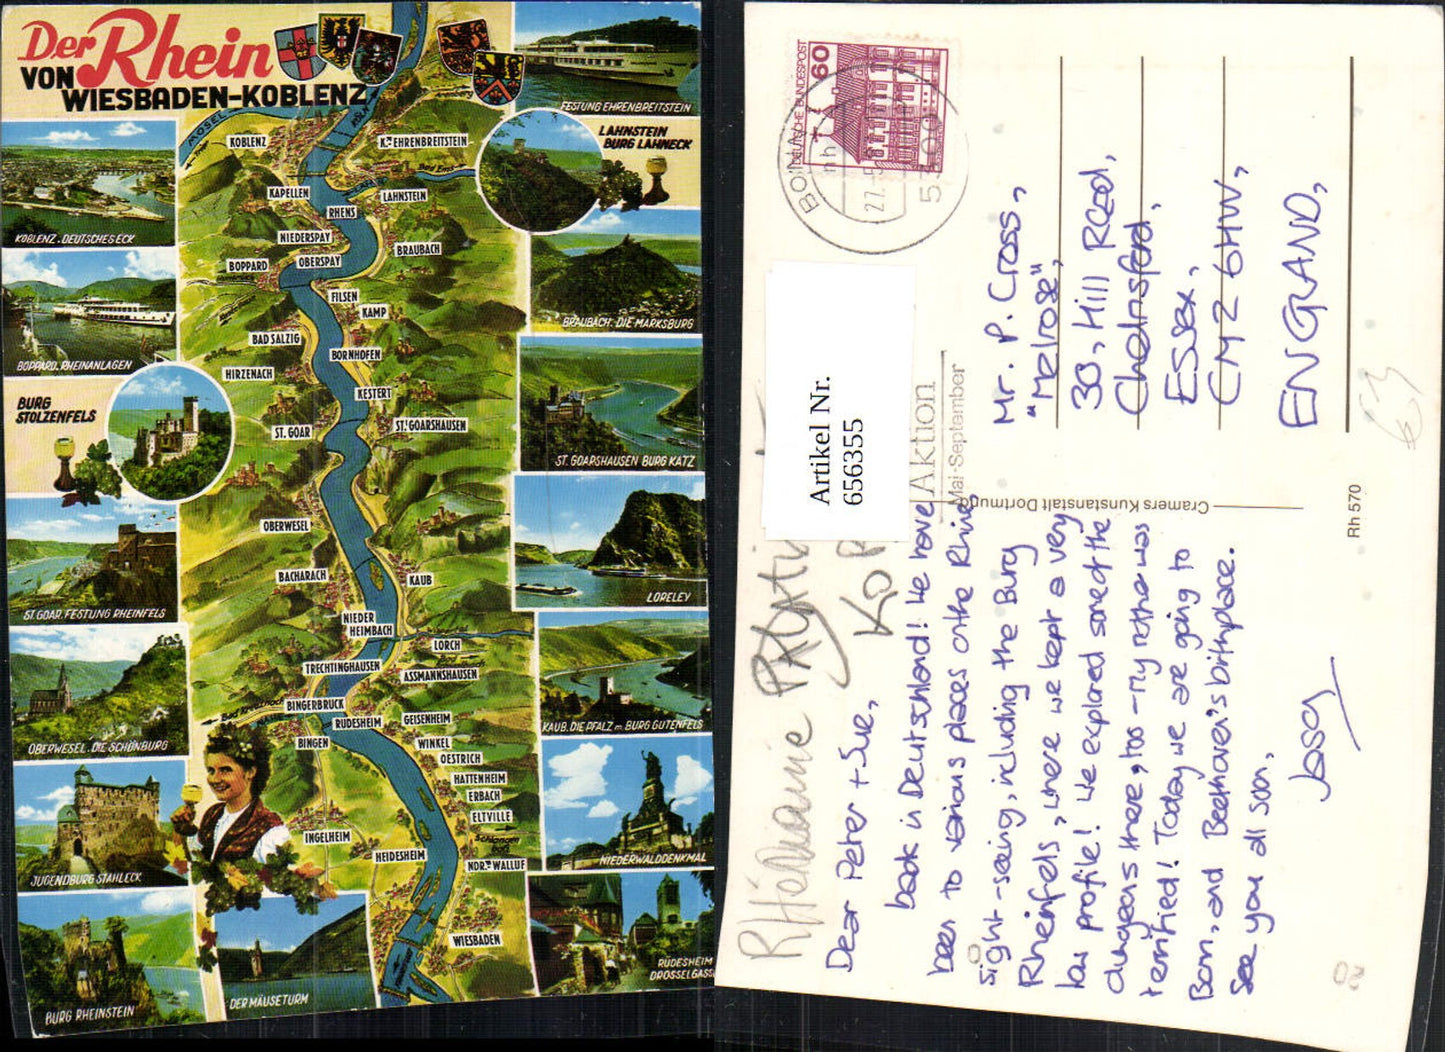 Der Rhein
VON
WIESBADEN-KOBLENZ
MOSEL
KÖLN
FESTUNG EHRENBREITSTEIN
KOBLENZ
K.-EHRENBREITSTEIN
LAHNSTEIN
BURG LAHNECK
Bad Ems
KAPELLEN
LAHNSTEIN
RHENS
KOBLENZ. DEUTSCHES ECK
NIEDERSPAY
BRAUBACH
BOPPARD
OBERSPAY
FILSEN
KAMP
BRAUBACH. DIE MARKSBURG
BAD SALZIG
BORNHOFEN
BOPPARD. RHEINANLAGEN
HIRZENACH
KESTERT
BURG
STOLZENFELS
ST. GOAR
ST. GOARSHAUSEN
ST. GOARSHAUSEN BURG KATZ
OBERWESEL
BACHARACH
KAUB
LORELEY
ST. GOAR. FESTUNG RHEINFELS
NIEDER
HEIMBACH
LORCH
TRECHTINGHAUSEN
ASSMANNSHAUSEN
Bad Kreuznach
BINGERBRUCK
RÜDESHEIM
GEISENHEIM
KAUB. DIE PFALZ m. BURG GUTENFELS
OBERWESEL. DIE SCHÖNBURG
BINGEN
WINKEL
OESTRICH
HATTENHEIM
ERBACH
ELTVILLE
INGELHEIM
Schlangenbad
HEIDESHEIM
NDR.-WALLUF
NIEDERWALDDENKMAL
JUGENDBURG STAHLECK
WIESBADEN
RÜDESHEIM
DROSSELGASSE
DER MÄUSETURM
BURG RHEINSTEIN
DEUTSCHE BUNDESPOST
60
BONN
27.
Artikel Nr.
656355
Aktion
Mai-September
Mr. P. Cross,
"Melrose",
30, Hill Road,
Chelmsford,
Essex,
CM2 6HW,
ENGLAND,
Cramers Kunstanstalt Dortmund
Rh 570
63
20
Dear Peter + Sue,
back in Deutschland! We have
been to various places on the Rhine,
sight-seeing, including the Burg
Rheinfels, where we kept a very
low profile! We explored some of the
dungeons there, too - my mother was
terrified! Today we are going to
Bonn, and Beethoven's birthplace.
See you all soon,